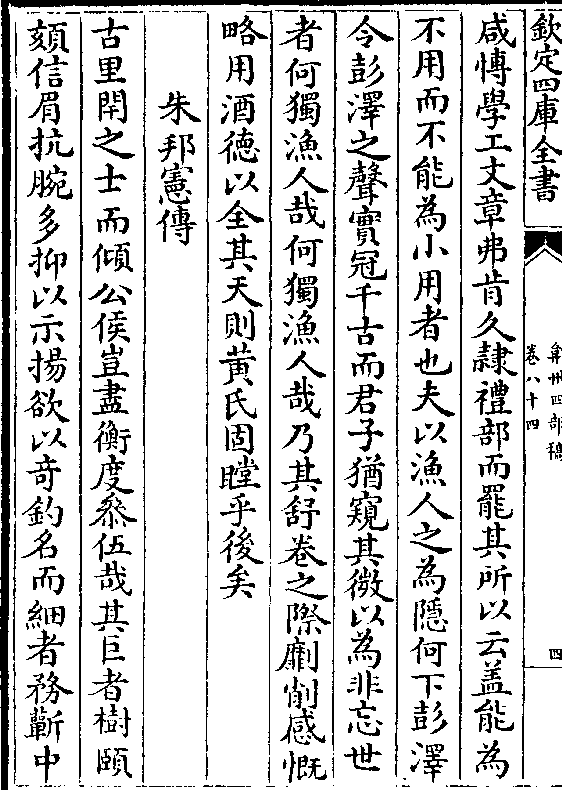 欽定四庫全書
弇州四部稿
卷八十四
四
咸慱學工文章弗肯久隷禮部而罷其所以云盖能為
不用而不能為小用者也夫以漁人之為隱何下彭澤
令彭澤之聲實冠千古而君子猶窺其微以為非忘世
者何獨漁人哉何獨漁人哉乃其舒卷之際劘削感慨
略用酒德以全其天則黄氏固瞠乎後矣
朱邦憲傳
古里閈之士而傾公侯豈盡衡度叅伍哉其巨者樹頤
頦信眉抗腕多抑以示揚欲以竒釣名而細者務蘄中